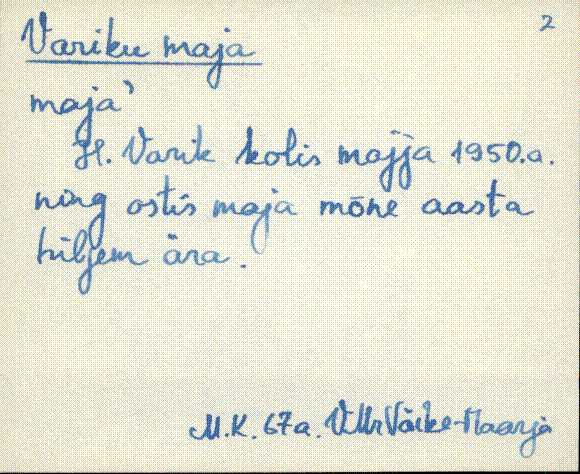 2
Variku maja
maja'
H. Varik kolis majja 1950.a.
ning ostis maja mõne aasta
hiljem ära.
M.K. 67a. VMr Väike-Maarja